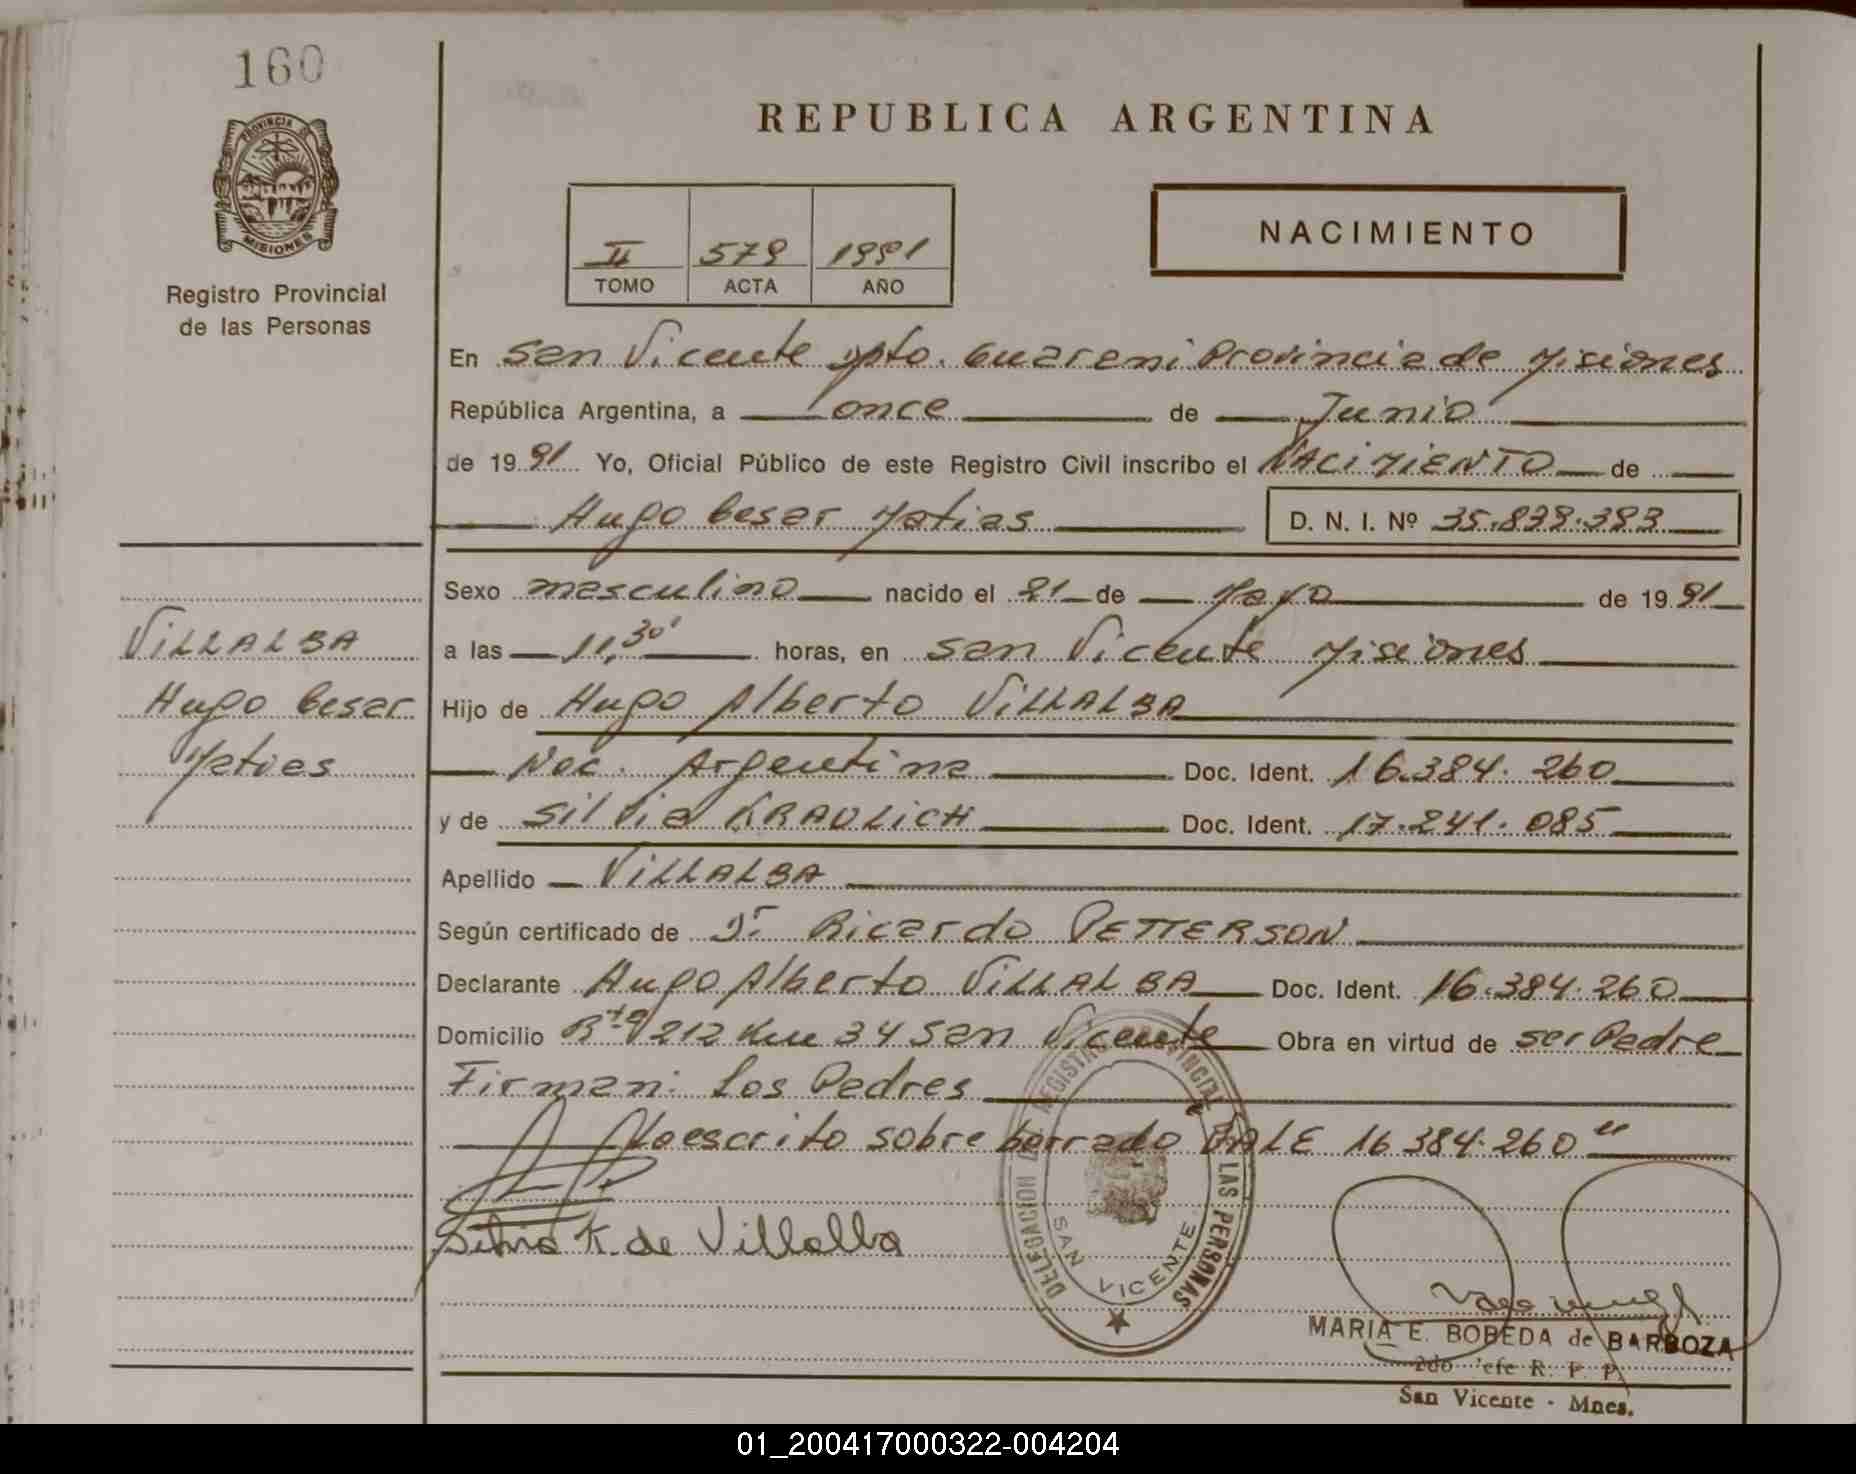 160
PROVINCIA DE
MISIONES
Registro Provincial
de las Personas
REPUBLICA ARGENTINA
NACIMIENTO
II 579 1991
TOMO ACTA AÑO
En San Vicente Dpto. Guarani Provincia de Misiones
República Argentina, a once de Junio
de 19 91 Yo, Oficial Público de este Registro Civil inscribo el NACIMIENTO de
Hugo Cesar Matias D. N. I. Nº 35.839.393
Sexo masculino nacido el 21 de Mayo de 19 91
a las 11,30' horas, en San Vicente Misiones
Hijo de Hugo Alberto VILLALBA
Nac. Argentina Doc. Ident. 16.384.260
y de Silvia KRAVLICH Doc. Ident. 17.241.085
Apellido VILLALBA
Según certificado de Dr. Ricardo PETTERSON
Declarante Hugo Alberto VILLALBA Doc. Ident. 16.384.260
Domicilio Rta 212 Km 34 San Vicente Obra en virtud de ser Padre
Firman: Los Padres
Lo escrito sobre borrado VALE 16 384.260"
Silvia K. de Villalba
VILLALBA
Hugo Cesar
Matias
DELEGACION DEL REGISTRO PROVINCIAL DE LAS PERSONAS
SAN VICENTE
MARIA E. BOBEDA de BARBOZA
2do Jefe R. P. P.
San Vicente - Mnes.
01_200417000322-004204